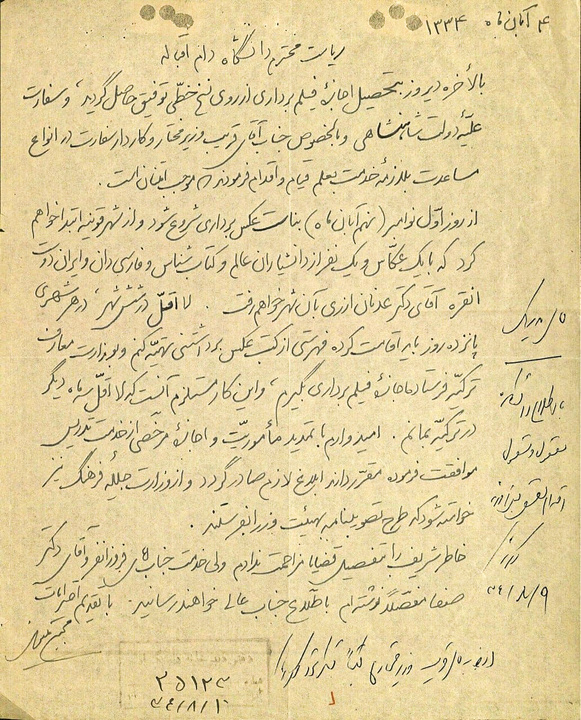 ۴ آبان ماه ۱۳۳۴
ریاست محترم دانشگاه دام اقباله
بالأخره دیروز بتحصیل اجازهٔ فیلم برداری از روی نسخ خطّی توفیق حاصل گردید، و سفارت
علیّهٔ دولت شاهنشاهی و بالخصوص جناب آقای قریب وزیر مختار و کاردار سفارت در انواع
مساعدت بلازمهٔ خدمت بعلم قیام و اقدام فرمودند که موجب امتنان است.
از روز اوّل نوامبر (نهم آبان ماه) بناست عکس برداری شروع شود و از شهر قونیه ابتدا خواهم
کرد که با یک عکّاس و یک نفر از دانشیاران عالم و کتاب شناس و فارسی دان و ایران دوست
انقره آقای دکتر عدنان ارزی بآن شهر خواهم رفت. لااقلّ در شش شهر، در هر شهری
پانزده روز باید اقامت کرده فهرستی از کتب عکس برداشتنی تهیّه کنم و بوزارت معارف
ترکیّه فرستاده اجازهٔ فیلم برداری بگیرم، و این کار مستلزم آنست که لااقلّ سه ماه دیگر
در ترکیّه بمانم. امیدوارم با تمدید مأموریّت و اجازهٔ مرخّصی از خدمت تدریس
موافقت فرموده مقرّر دارند ابلاغ لازم صادر گردد و از وزارت جلیلهٔ فرهنگ نیز
خواسته شود که طرح تصویبنامه بهیئت وزرا بفرستند.
خاطر شریف را بتفصیل قضایا مزاحمت ندادم ولی خدمت جناب آقای فروزانفر و آقای دکتر
صفا مفصّلاً نوشته‌ام باطّلاع جناب عالی خواهند رسانید. با تقدیم احترامات
مجتبی مینوی
باطلاع دانشکده
معقول و منقول
۳۴/۸/۹
۲۵۱۲۳
۳۴/۸/۱۰